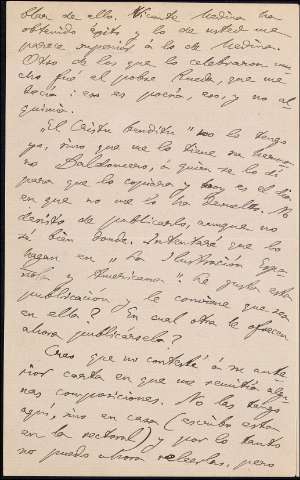 blar de ello. Vicente Medina ha
obtenido éxito y lo de usted me
parece superior á lo de Medina.
Otro de los que lo celebraron mu-
cho fué el pobre Rueda, que me
decía: eso es poesía, eso, y no al-
quimia.
"El Cristu benditu" no lo tengo
yo, sino que me lo tiene su herma-
no Baldomero, á quien se lo dí
para que lo copiara y hoy es el día
en que no me lo ha devuelto. No
desisto de publicarlo, aunque no
sé bien donde. Intentaré que lo
hagan en "La Ilustración Espa-
ñola y Americana". ¿Le gusta esta
publicación y le conviene que sea
en ella? ¿En cual otra le ofrecen
ahora publicársela?
Creo que no contesté á su ante-
rior carta en que me remitía algu-
nas composiciones. No las tengo
aquí, sino en casa (escribo esto
en la rectoral) y por lo tanto
no puedo ahora releerlas, pero